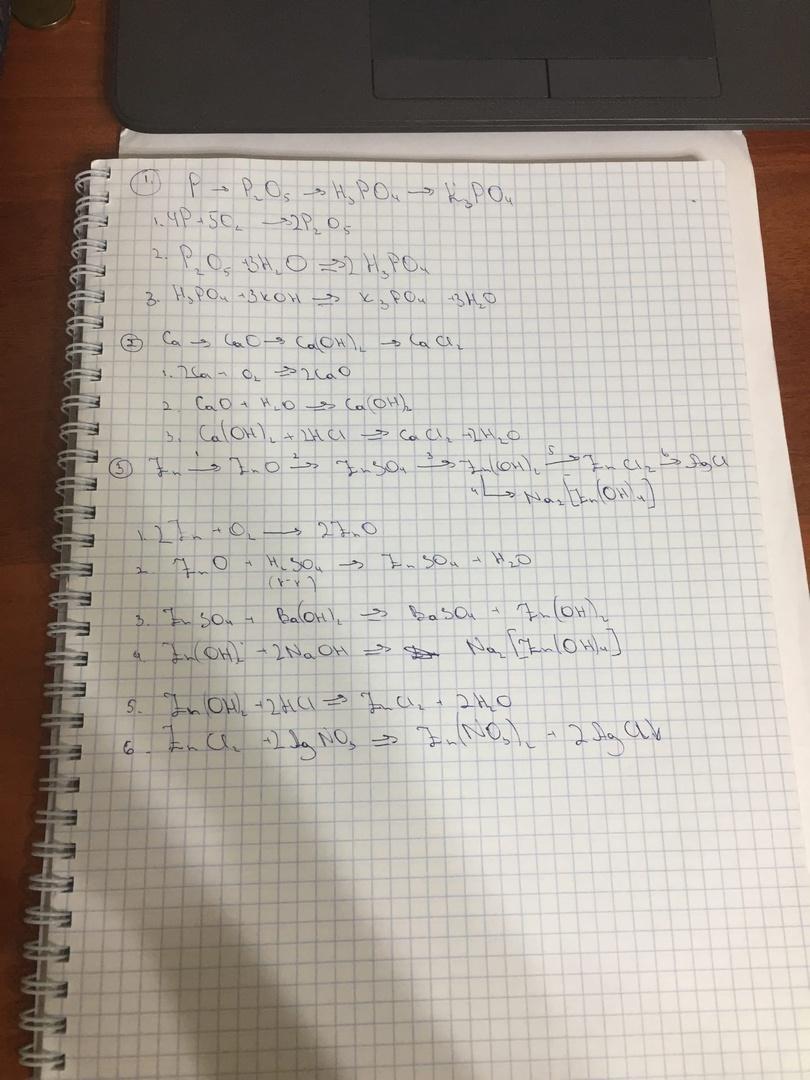 ① P → P₂O₅ → H₃PO₄ → K₃PO₄
1. 4P+5O₂ → 2P₂O₅
2. P₂O₅ +3H₂O ⇒ 2 H₃PO₄
3. H₃PO₄ +3KOH ⇒ K₃PO₄ +3H₂O
② Ca → CaO → Ca(OH)₂ → CaCl₂
1. 2Ca – O₂ ⇒ 2CaO
2. CaO + H₂O ⇒ Ca(OH)₂
3. Ca(OH)₂ + 2HCl ⇒ CaCl₂ +2H₂O
③ Zn →¹ ZnO →² ZnSO₄ →³ Zn(OH)₂ →⁵ ZnCl₂ →⁶ AgCl
4 ↳ Na₂[Zn(OH)₄]
1. 2Zn + O₂ → 2ZnO
2. ZnO + H₂SO₄ → ZnSO₄ + H₂O
3. ZnSO₄ + Ba(OH)₂ ⇒ BaSO₄ + Zn(OH)₂
4. Zn(OH)₂ +2NaOH ⇒ Na₂[Zn(OH)₄]
5. Zn(OH)₂ +2HCl ⇒ ZnCl₂ + 2H₂O
6. ZnCl₂ +2AgNO₃ ⇒ Zn(NO₃)₂ + 2AgCl↓